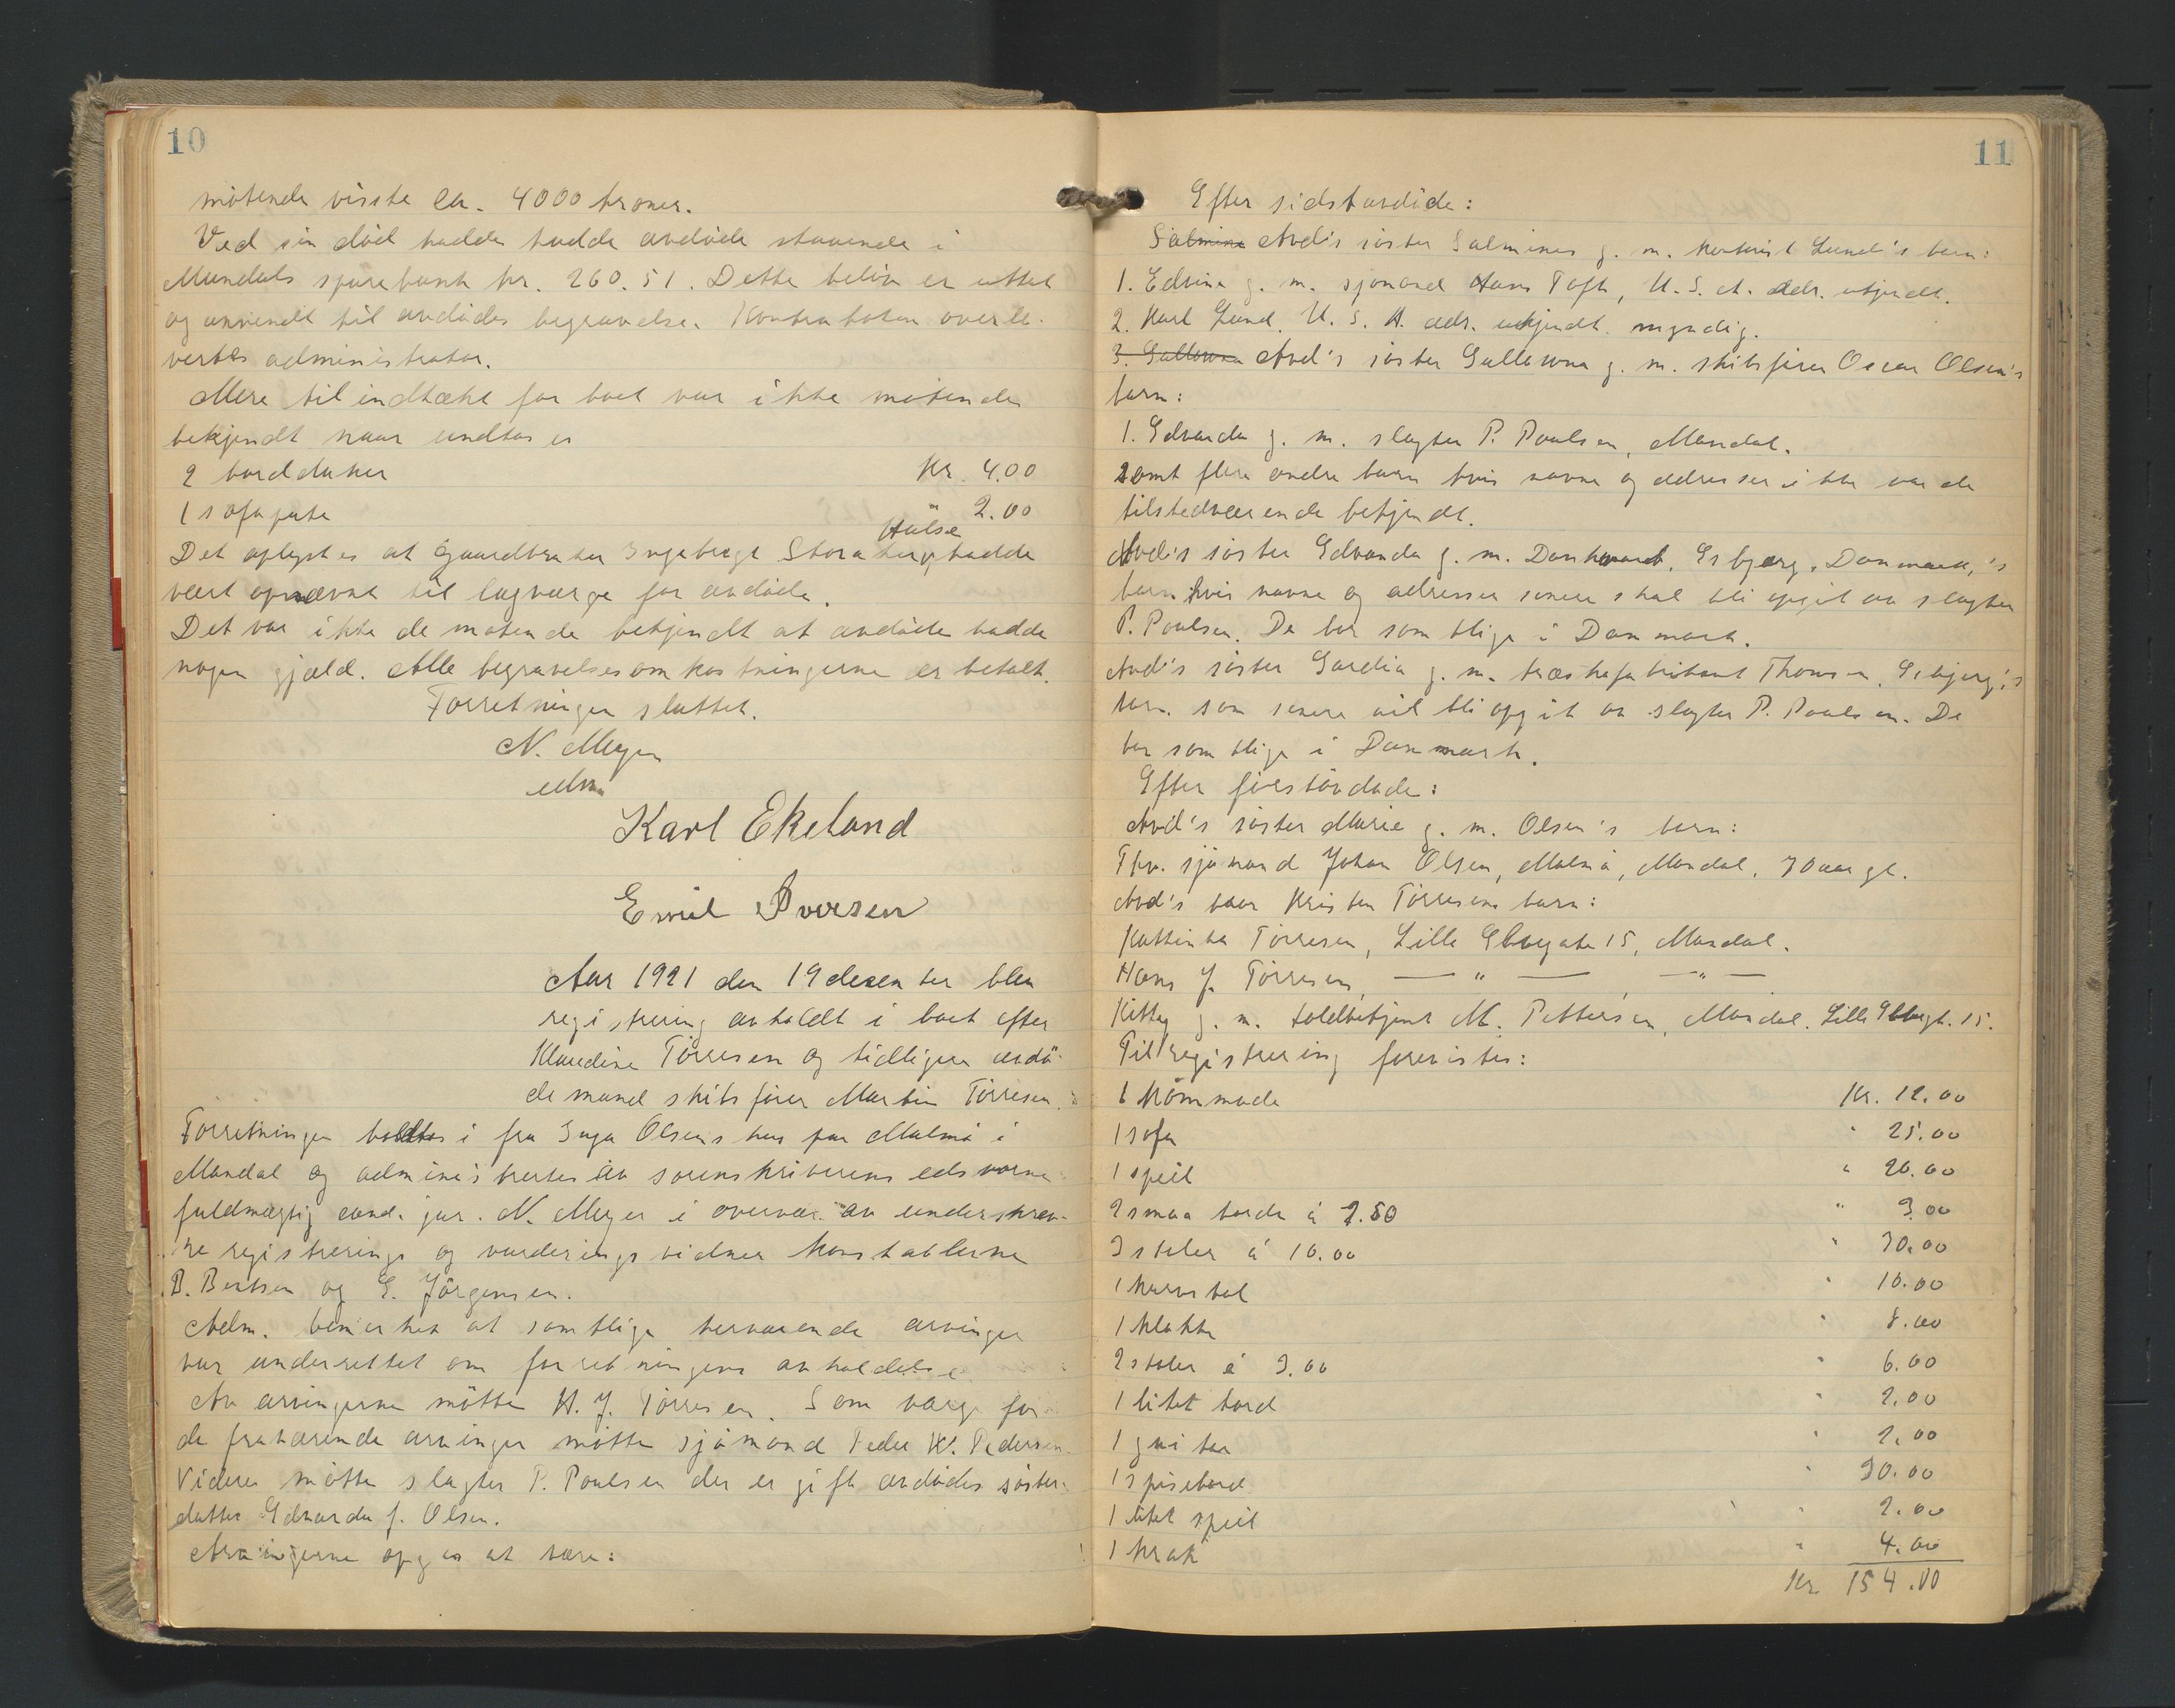 10
møtende visste ca. 4000 kroner.
Ved sin död hadde hadde avdöde staaende i
Mandals sparebank kr. 260.51. Dette belöp er uttat
og anvendt til avdödes begravelse. Kontraboken overle-
vertes administrator.
Mere til indtækt for boet var ikke møtende
bekjendt naar undtas er
2 bordduker Kr. 4.00
1 sofapute " 2.00
Hålse
Det oplystes at gaardbruker Ingebregt Storaker hadde
vært opnævnt til lagværge for avdöde.
Det var ikke de møtende bekjendt at avdöde hadde
nogen gjæld. Alle begravelsesomkostningerne er betalt.
Forretningen sluttet.
N. Meyer
edsv.
Karl Ekeland
Emil Iversen
Aar 1921 den 19 desember blev
registrering avholdt i boet efter
Klaudine Törresen og tidligere avdö-
de mand skibsförer Martin Törresen.
Forretningen holdtes i fru Inga Olsens hus paa Malmö i
Mandal og administrertes av sorenskriverens edsvorne
fuldmægtig cand. jur. N. Meyer i overvær av underskrev-
ne registrerings og vurderingsvidner konstablerne
B. Bentsen og G. Jörgensen.
Adm. bemerket at samtlige herværende arvinger
var underrettet om forretningens avholdelse
Av arvingerne mötte H. J. Törresen. Som værge for
de fraværende arvinger mötte sjömand Peder W. Pedersen.
Videre mötte slagter P. Poulsen der er gift avdödes söster-
datter Edvarda f. Olsen.
Arvingerne opg es at være:
11
Efter sidstavdöde:
Salmine Avd's söster Salmines g. m. Lund's barn:
1. Edvine g. m. sjömand Hans Toft, U. S. A. adr. utjendt.
2. Karl Lund. U. S. A. adr. utkjendt. myndig.
3. Gallowna Avd's söster Gallowna g. m. skibsförer Oscar Olsen's
barn:
1. Edvarda g. m. slagter P. Poulsen, Mandal.
samt flere andre barn hvis navne og adresser ikke var de
tilstedværende bekjendt.
Avd's söster Edvanda g. m. Dankwart, Esbjerg, Danmark,'s
barn hvis navne og adresser senere skal bli opgit av slagter
P. Poulsen. De bor samtlige i Danmark.
Avd's söster Gardia g. m. træskofabrikant Thomsen, Esbjerg's
barn, som senere vil bli opgit av slagter P. Poulsen. De
bor samtlige i Danmark.
Efter förstavdöde:
Avd's söster Marie g. m. Olsen's barn:
Fhv. sjömand Johan Olsen, Malmö, Mandal, 70 aar gl.
Avd's bror Kristen Törresens barn:
Kattinka Törresen, Lille Elvegate 15, Mandal.
Hans J. Törresen, — " — , — " —
Kitty g. m. toldbetjent M. Pettersen, Mandal. Lille Elvegt. 15.
Til registrering forevistes:
1 kommode Kr. 12.00
1 sofa " 25.00
1 speil " 20.00
2 smaa borde á 1.50 " 3.00
3 stoler á 10.00 " 30.00
1 kurvstol " 10.00
1 klokke " 8.00
2 stoler á 3.00 " 6.00
1 litet bord " 2.00
1 guitar " 2.00
1 spisebord " 30.00
1 litet speil " 2.00
1 krak " 4.00
Kr. 154.00